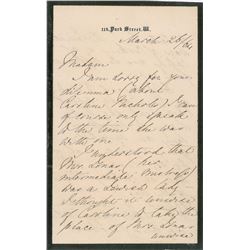 Park Street, W.
March 26/
Madam
I am sorry for your
dilemma (about
Caroline Nicholls) I can
of course only speak
to the time she was
with me
I understood that
Mrs. (her
intermediate Mistress)
was a Jewish lady
I thought it unwise
of Caroline to take the
place of Mrs.
unwise